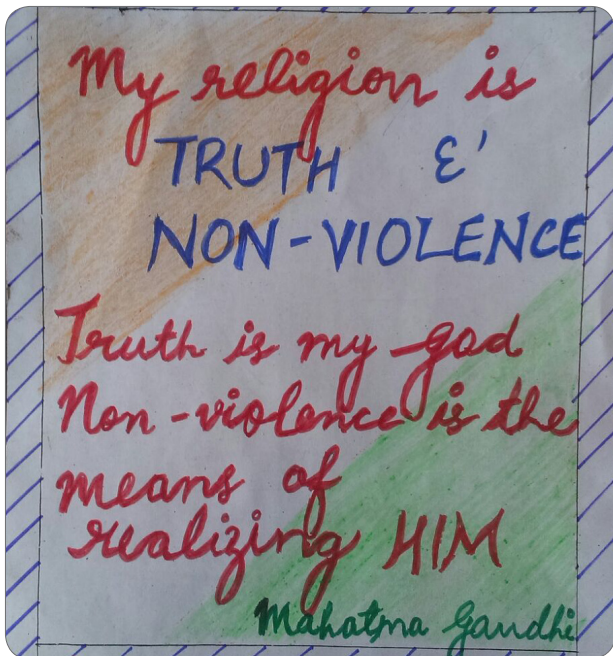 My religion is
TRUTH &
NON-VIOLENCE
Truth is my god
Non-violence is the
means of
realizing HIM
Mahatma Gandhi